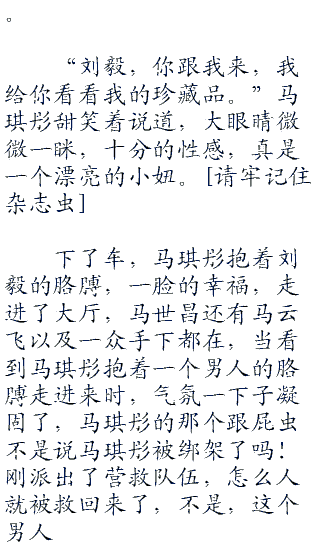 。
“刘毅，你跟我来，我
给你看看我的珍藏品。”马
琪彤甜笑着说道，大眼睛微
微一眯，十分的性感，真是
一个漂亮的小妞。[请牢记住
杂志虫]
下了车，马琪彤抱着刘
毅的胳膊，一脸的幸福，走
进了大厅，马世昌还有马云
飞以及一众手下都在，当看
到马琪彤抱着一个男人的胳
膊走进来时，气氛一下子凝
固了，马琪彤的那个跟屁虫
不是说马琪彤被绑架了吗！
刚派出了营救队伍，怎么人
就被救回来了，不是，这个
男人